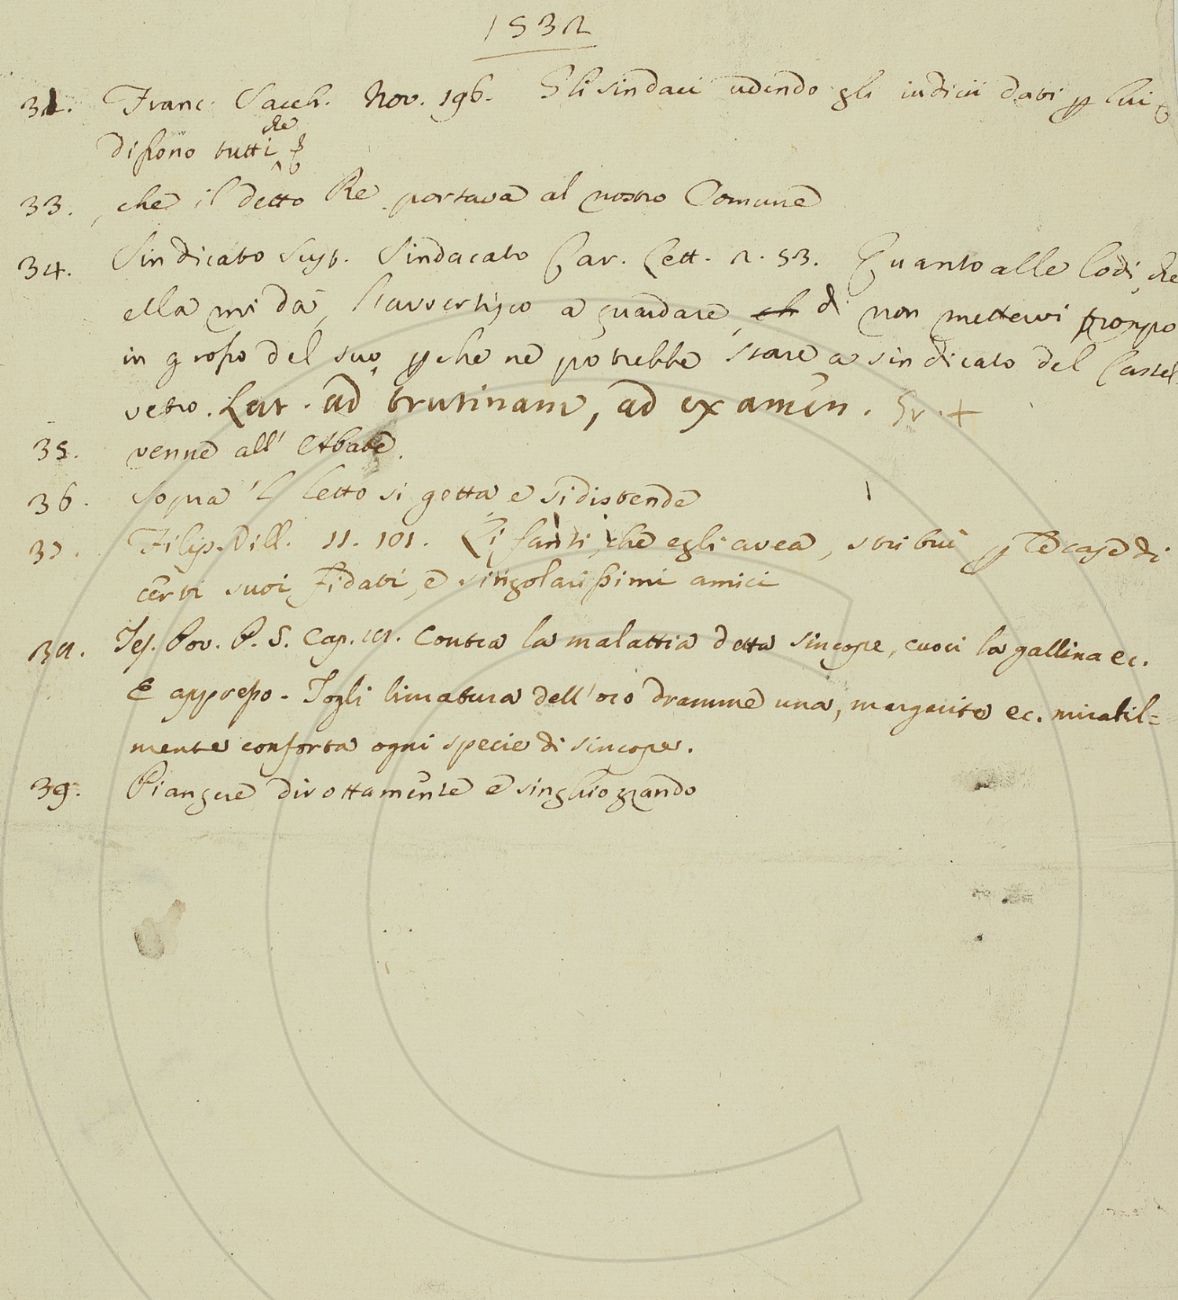 1532
32. Franc. Sacch. Nov. 196. Gli sindaci udendo gli iudicii dati p lui
dissono tutti che
33. che il detto Re portava al nostro Comune
34. Sindicato Sust. Sindacato Car. Lett. 2. 53. Quanto alle lodi, che
ella mi dà, l'avvertisco a guardare, ch di non mettervi troppo
in grosso del suo, p che ne potrebbe stare a sindicato del Castel-
vetro. Lat. ad trutinam, ad examen. Gr. +
35. venne all' Abate.
36. Sopra 'l letto si getta e si distende
37. Filip. Vill. 11. 101. Li fanti, che egli avea, stribuì p le case di
certi suoi fidati, e singolarissimi amici
38. Tes. Pov. P. S. Cap. 19. Contra la malattia detta sincope, cuoci la gallina ec.
E appresso - Togli limatura dell' oro dramme una, margarite ec. mirabil=
mente conforta ogni specie di sincope.
39. Piangere dirottamente e singhiozzando